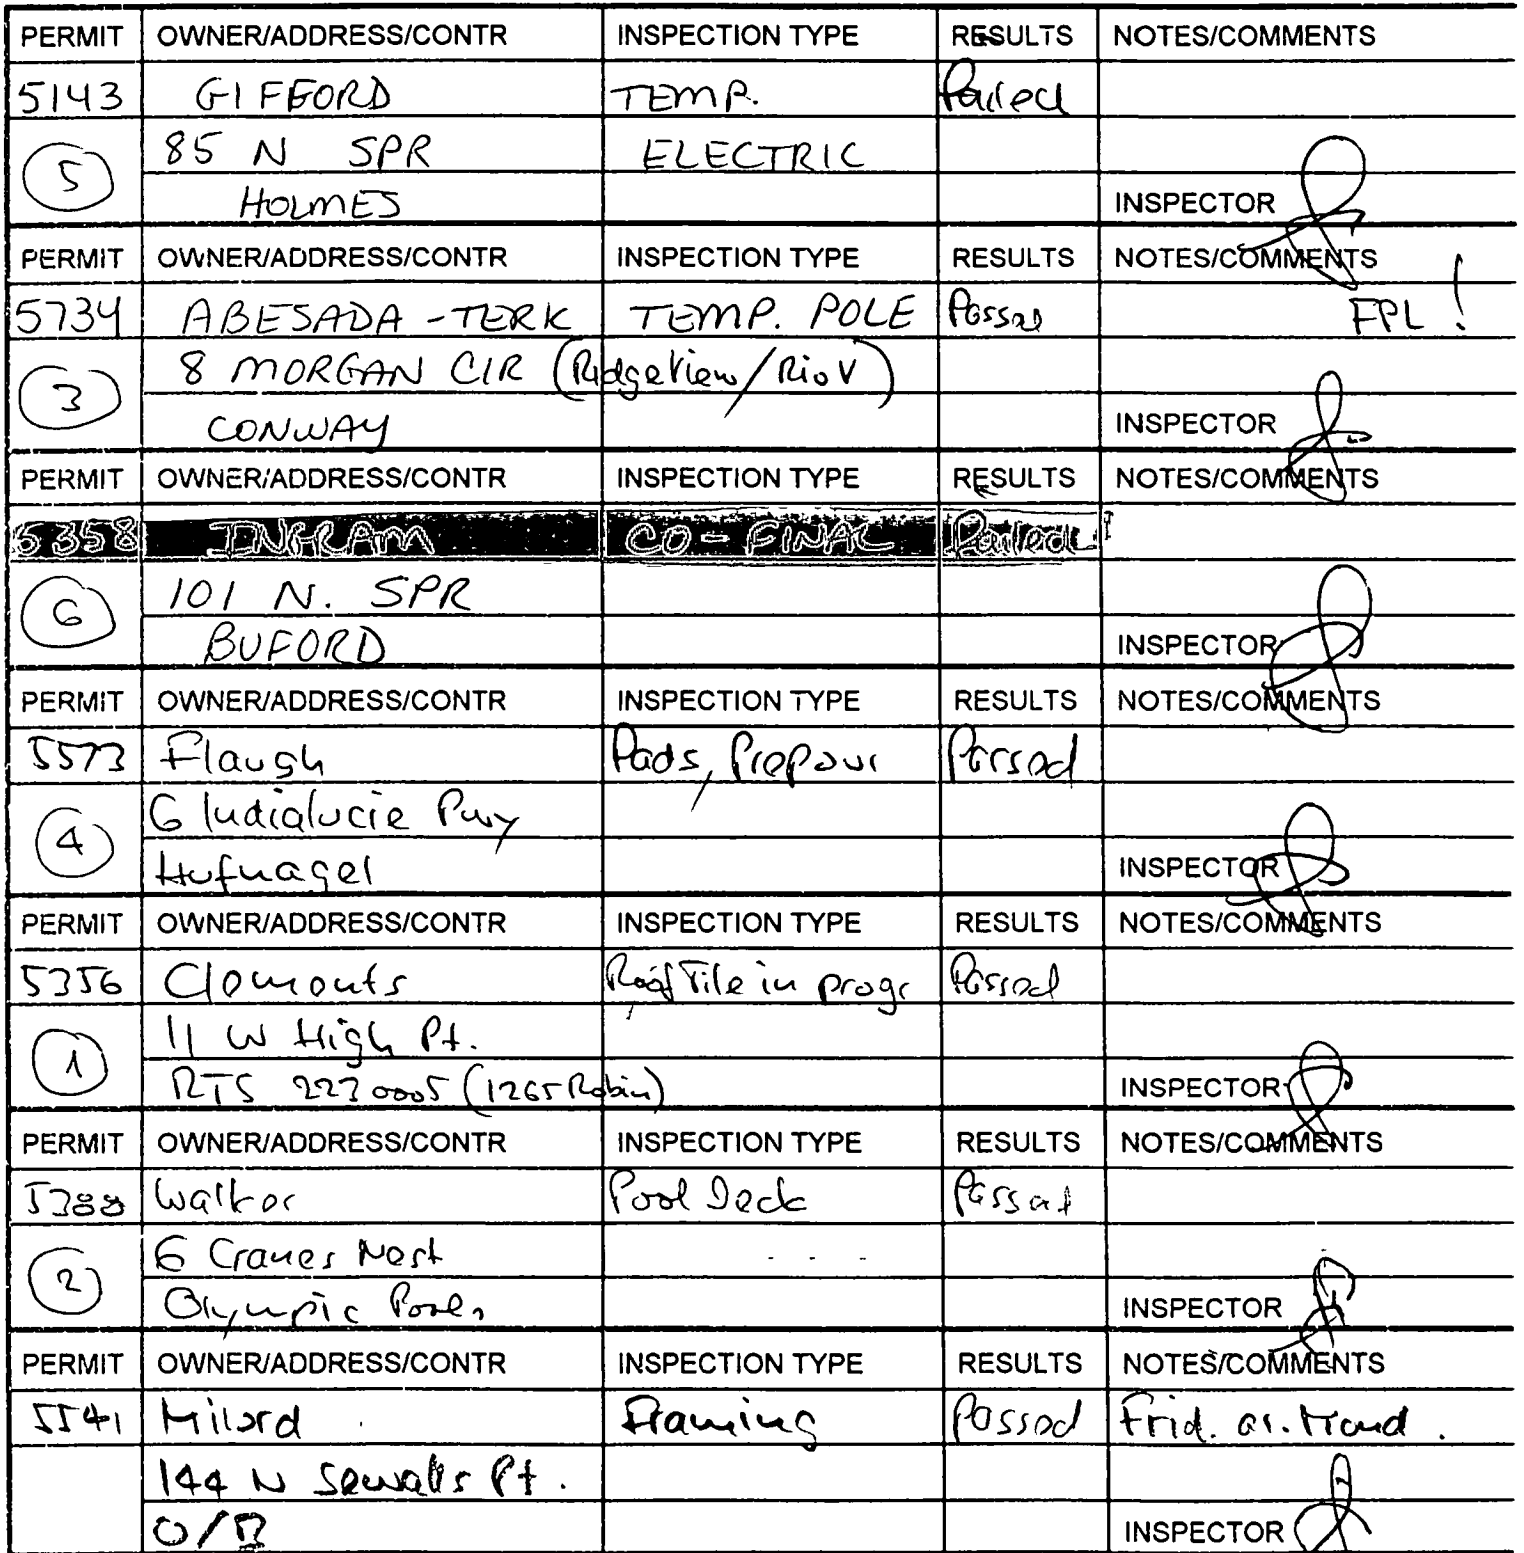 PERMIT OWNER/ADDRESS/CONTR INSPECTION TYPE RESULTS NOTES/COMMENTS
5143 GIFFORD TEMP. Failed
5 85 N SPR ELECTRIC
HOLMES INSPECTOR
PERMIT OWNER/ADDRESS/CONTR INSPECTION TYPE RESULTS NOTES/COMMENTS
5734 ABESADA-TERK TEMP. POLE Passed FPL!
3 8 MORGAN CIR (Ridgeview/RioV)
CONWAY INSPECTOR
PERMIT OWNER/ADDRESS/CONTR INSPECTION TYPE RESULTS NOTES/COMMENTS
5358 INGRAM CO-FINAL Failed
6 101 N. SPR
BUFORD INSPECTOR
PERMIT OWNER/ADDRESS/CONTR INSPECTION TYPE RESULTS NOTES/COMMENTS
5573 Flaugh Pads, Prepour Passed
4 6 Indialucie Pwy
Hufnagel INSPECTOR
PERMIT OWNER/ADDRESS/CONTR INSPECTION TYPE RESULTS NOTES/COMMENTS
5356 Clements Roof Tile in progr Passed
1 11 W High Pt.
RTS 223 0005 (1265 Robin) INSPECTOR
PERMIT OWNER/ADDRESS/CONTR INSPECTION TYPE RESULTS NOTES/COMMENTS
5388 Walker Pool Deck Passed
2 6 Cranes Nest
Olympic Pools INSPECTOR
PERMIT OWNER/ADDRESS/CONTR INSPECTION TYPE RESULTS NOTES/COMMENTS
5541 Milord Framing Passed Frid. or. Mond.
144 N Sewalls Pt.
O/B INSPECTOR